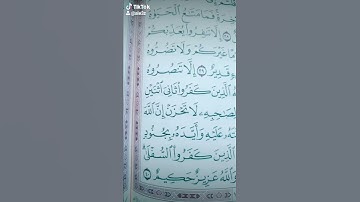 TikTok
ٱلْحَيَوٰةِ
إِلَّا تَنفِرُوا۟ يُعَذِّبْكُمْ
غَيْرَكُمْ وَلَا تَضُرُّوهُ
قَدِيرٌ ٣٩ إِلَّا تَنصُرُوهُ
ٱلَّذِينَ كَفَرُوا۟ ثَانِىَ ٱثْنَيْنِ
لِصَٰحِبِهِۦ لَا تَحْزَنْ إِنَّ ٱللَّهَ
عَلَيْهِ وَأَيَّدَهُۥ بِجُنُودٍ
ٱلَّذِينَ كَفَرُوا۟ ٱلسُّفْلَىٰ
وَٱللَّهُ عَزِيزٌ حَكِيمٌ ٤٠